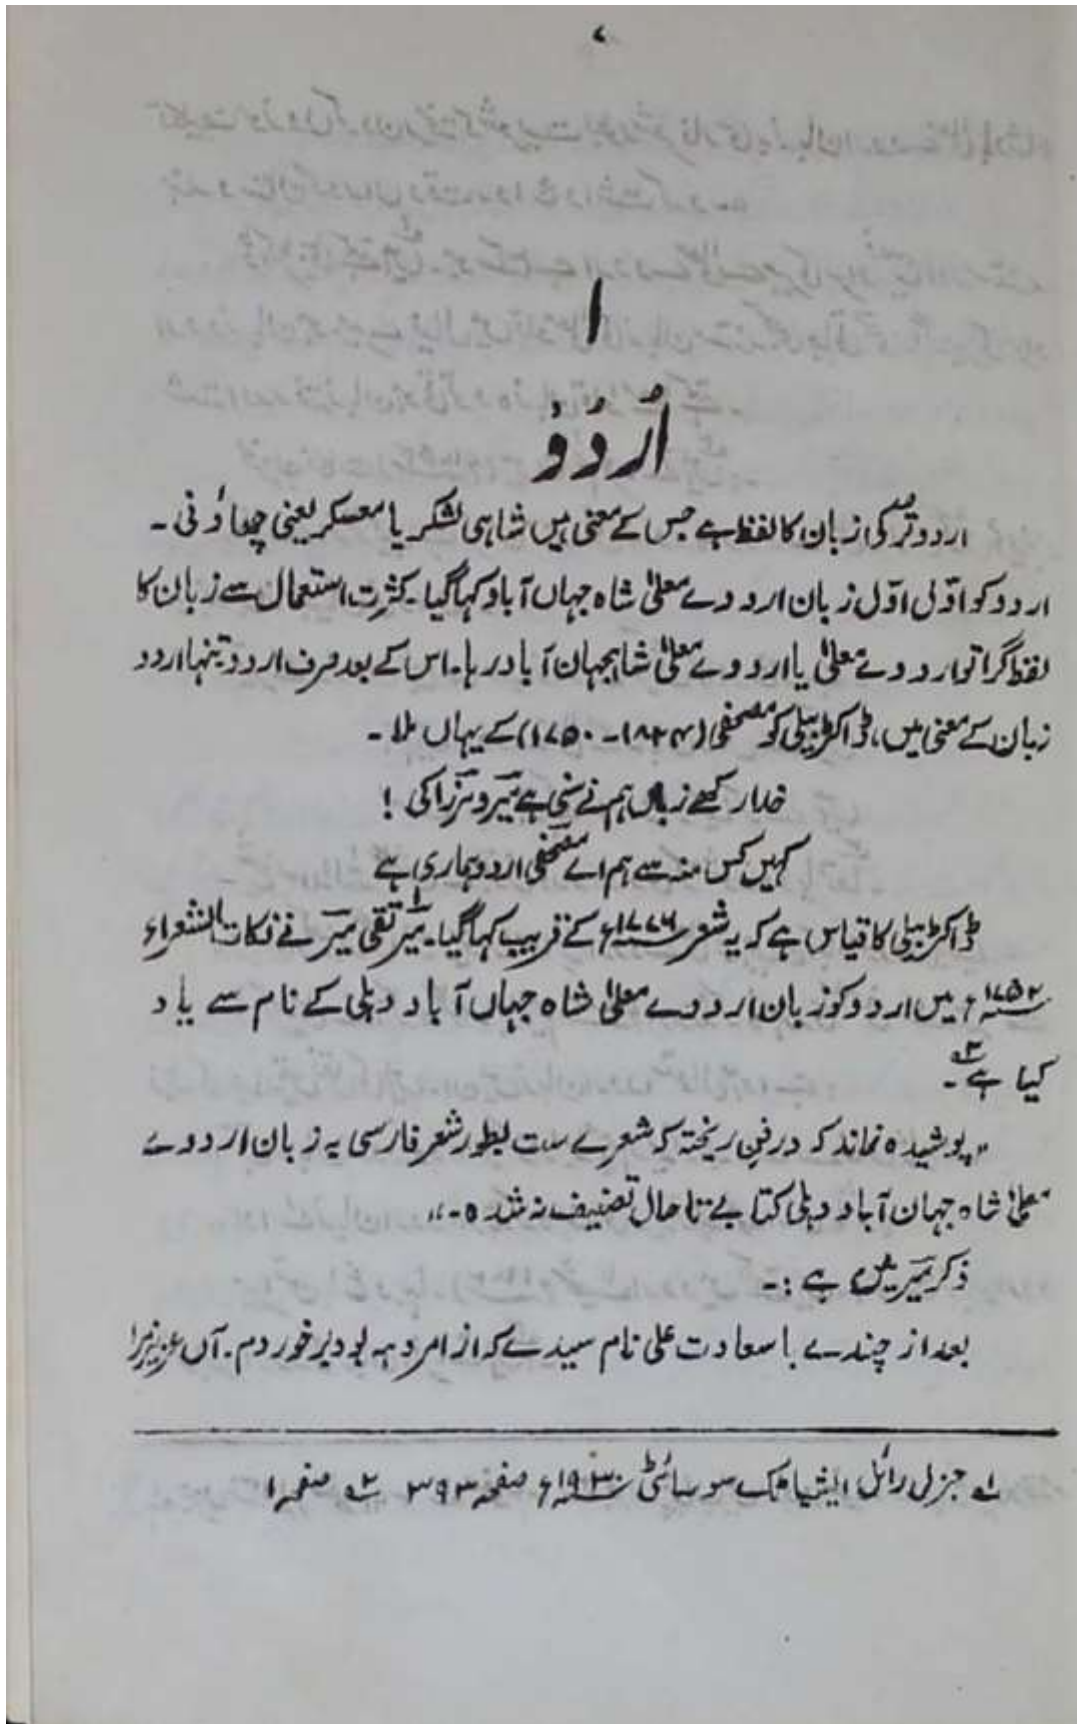 ۷
۱
اُردُو
اردو تُرکی زبان کا لفظ ہے جس کے معنی ہیں شاہی لشکر یا معسکر یعنی چھاؤنی ۔
اردو کو اوّلی اوّل زبان اردوے معلیٰ شاہ جہاں آباد کہا گیا ۔ کثرت استعمال سے زبان کا
لفظ گرا تو اردوے معلیٰ یا اردوے معلیٰ شاہجہان آباد رہا ۔ اس کے بعد صرف اردو تنہا اردو
زبان کے معنی میں ، ڈاکٹر بیلی کو مصحفی (۱۸۲۴ - ۱۷۵۰) کے یہاں ملا ۔
خدا رکھے زباں ہم نے سُنی ہے میر و مرزا کی !
کہیں کس منہ سے ہم اے مصحفی اردو ہماری ہے
ڈاکٹر بیلی کا قیاس ہے کہ یہ شعر ۱۷۷۶ء کے قریب کہا گیا ۔۱ میر تقی میر نے نکات الشعراء
۱۷۵۲ء میں اردو کو زبان اردوے معلیٰ شاہ جہاں آباد دہلی کے نام سے یاد
کیا ہے ۲ ۔
"پوشیدہ نماند کہ در فنِ ریختہ کہ شعرے ست بطور شعر فارسی بہ زبان اردوے
معلیٰ شاہ جہان آباد دہلی کتابے تا حال تصنیف نہ شدہ ۔"
ذکر میر میں ہے :۔
بعد از چندے با سعادت علی نام سیدے کہ از امروہہ بود برخوردم ۔ آں عزیز مرا
۱ جنرل رائل ایشیاٹک سوسائٹی ۱۹۳۰ء صفحہ ۳۹۳ ۲ صفحہ ۱